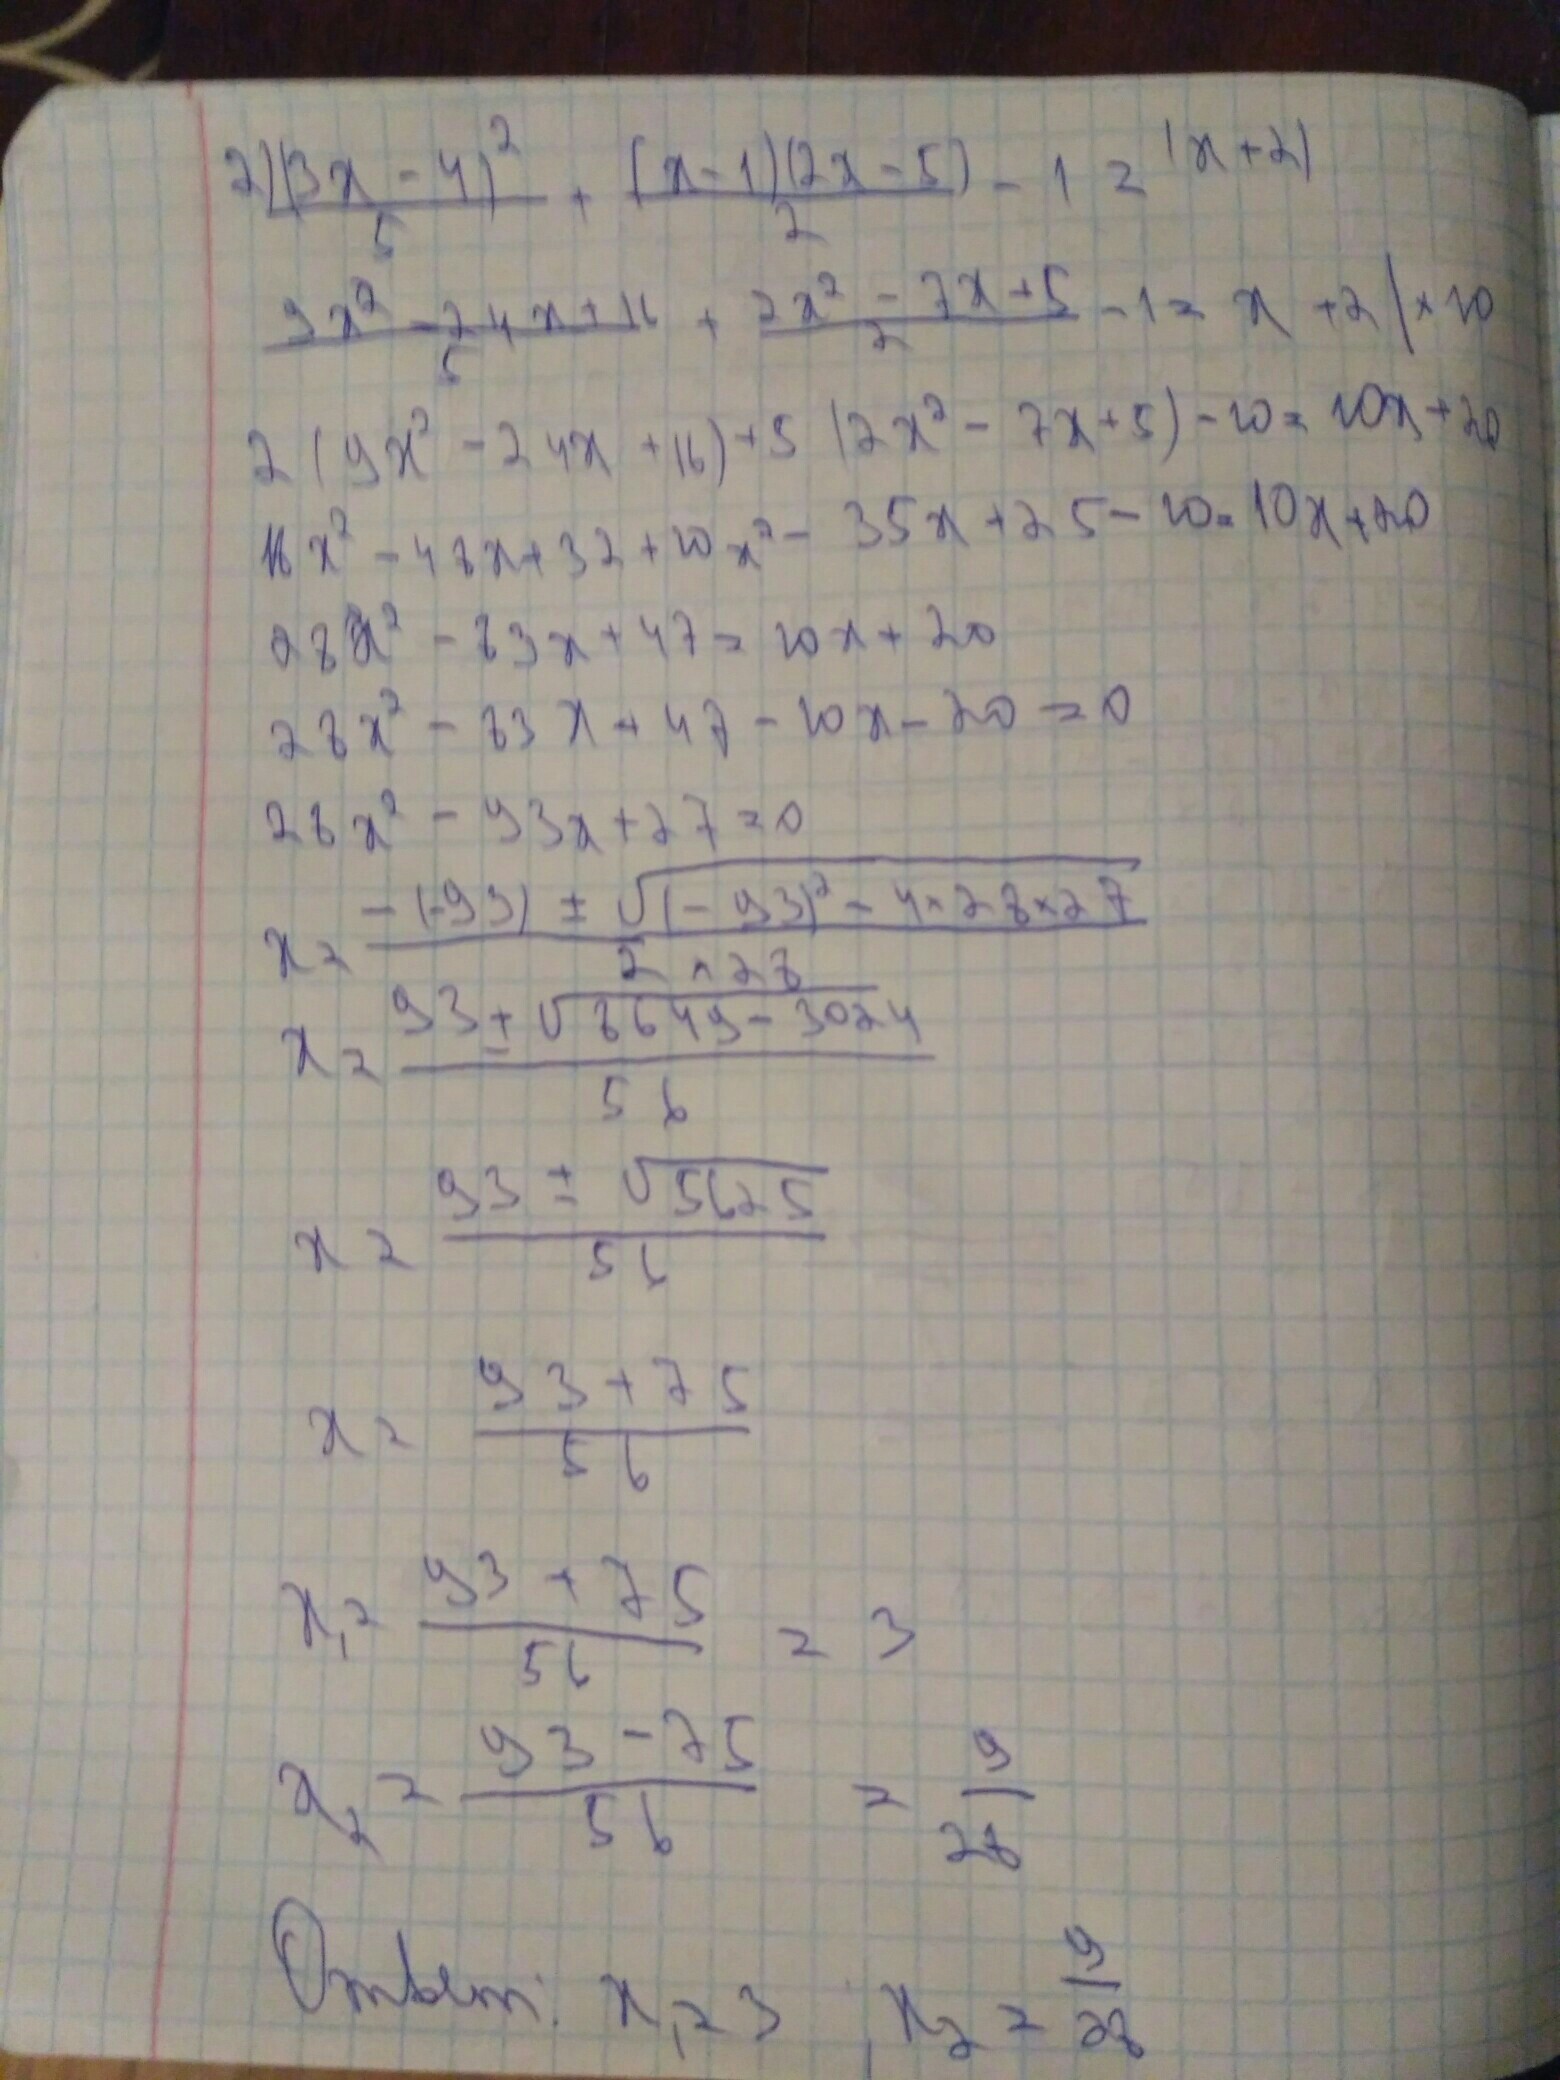 2) (3x - 4)²/5 + (x - 1)(2x - 5)/2 - 1 = (x + 2)
9x² - 24x + 16/5 + 2x² - 7x + 5/2 - 1 = x + 2 | × 10
2 (9x² - 24x + 16) + 5 (2x² - 7x + 5) - 10 = 10x + 20
18x² - 48x + 32 + 10x² - 35x + 25 - 10 = 10x + 20
28x² - 83x + 47 = 10x + 20
28x² - 83x + 47 - 10x - 20 = 0
28x² - 93x + 27 = 0
x = -(-93) ± √(-93)² - 4 × 28 × 27 / 2 × 28
x = 93 ± √8649 - 3024 / 56
x = 93 ± √5625 / 56
x = 93 + 75 / 56
x₁ = 93 + 75 / 56 = 3
x₂ = 93 - 75 / 56 = 9/28
Ответ: x₁ = 3 ; x₂ = 9/28